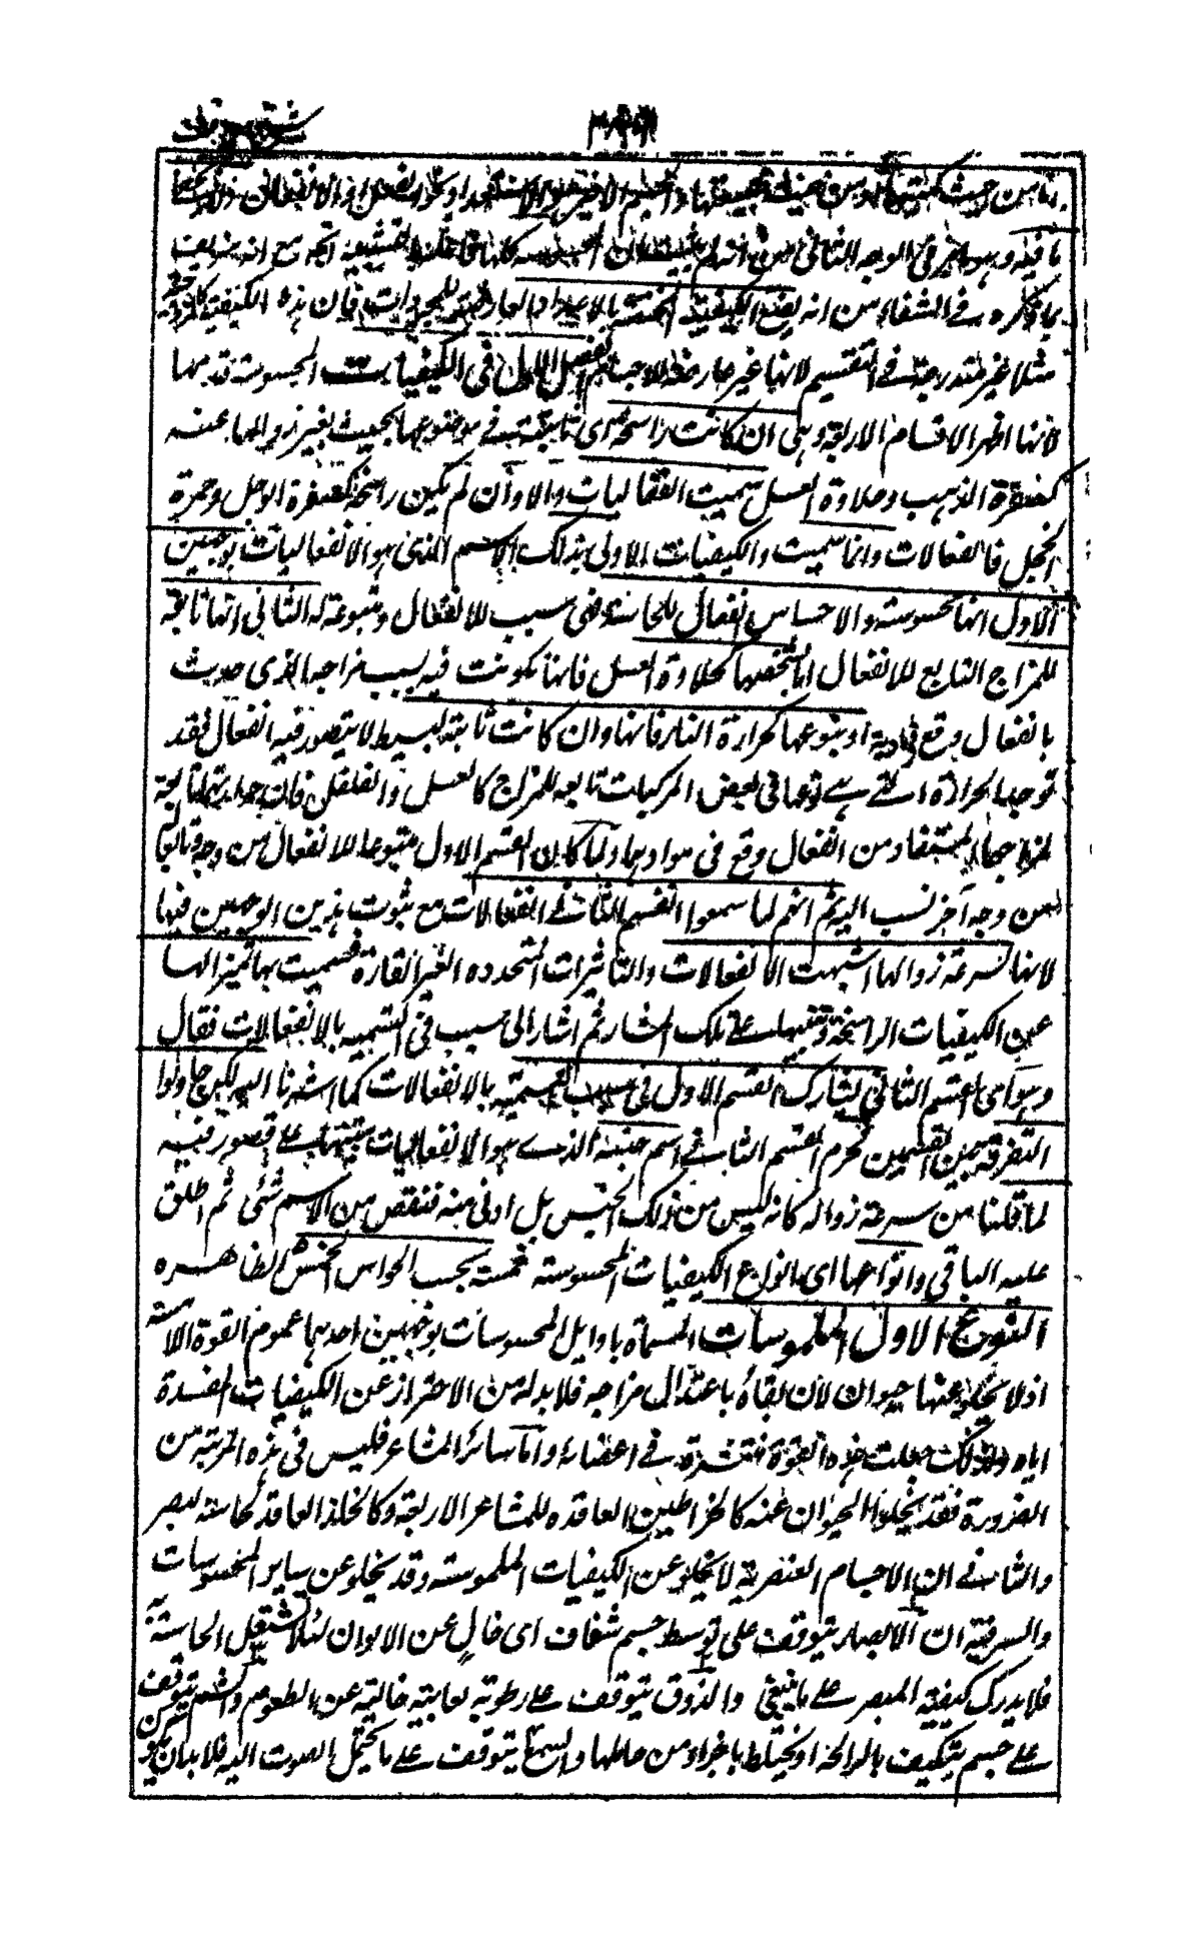 اما من حيث كميتها او من حيث طبيعتها
ما فيه وهو ما مر في الوجه الثاني من انه لم يثبت ان المحسوسة كلها فاعلة بالتشبيه اتجه مع انه
ما ذكره في الشفاء من انه يضع الكيفية المختصة بالاعداد العارضة للمجردات فان هذه الكيفية
مثلا غير مندرجة في التقسيم لانها غير عارضة للاجسام الفصل الاول في الكيفيات المحسوسة قدمها
لانها اظهر الاقسام الاربعة وهي ان كانت راسخة اى ثابتة في موضوعها بحيث يعسر زوالها عنه
كصفرة الذهب وحلاوة العسل سميت انفعاليات والا وان لم يكن راسخة كصفرة الوجل وحمرة
الخجل فانفعالات وانما سميت الكيفيات الاولى بذلك الاسم الذى هو الانفعاليات بوجهين
الاول انها محسوسة والاحساس انفعال للحاسة فهى سبب للانفعال ومتبوعة له الثانى انها تابعة
للمزاج التابع للانفعال اما بشخصها كحلاوة العسل فانها تكونت فيه بسبب مزاجه الذى حدث
بانفعال وقع في مادته او بنوعها كحرارة النار فانها وان كانت ثابتة لبسيط لا يتصور فيه انفعال فقد
توجد الحرارة التى هى نوعها في بعض المركبات تابعة للمزاج كالعسل والفلفل فان حرارتهما تابعة
لمزاجهما المستفاد من انفعال وقع فى موادهما ولما كان القسم الاول متبوعا للانفعال من وجه وتابعا
له من وجه آخر نسب اليه ثم انهم لما سموا القسم الثانى انفعالات مع ثبوت هذين الوجهين فيها
لانها لسرعة زوالها اشبهت الانفعالات والتأثيرات المتجدده الغير القارة فسميت بها تمييزا لها
عن الكيفيات الراسخة وتنبيها على تلك المشاركة ثم اشار الى سبب فى التسمية بالانفعالات فقال
وهو اى القسم الثاني يشارك القسم الاول فى سبب التسمية بالانفعالات كما اشرنا اليه لكن حاولوا
التفرقة بين القسمين فحرم القسم الثانى اسم جنسه الذى هو الانفعاليات تنبيها على قصور فيه
لما قلنا من سرعة زواله كانه ليس من ذلك الجنس بل ادنى منه فنقص من الاسم شئ ثم اطلق
عليه الباقى وانواعها اى انواع الكيفيات المحسوسة خمسة بحسب الحواس الخمس الظاهره
النوع الاول الملموسات المسماة باوايل المحسوسات بوجهين احدهما عموم القوة اللامسة
اذ لا يخلو عنها حيوان لان بقاءه باعتدال مزاجه فلا بد له من الاحتراز عن الكيفيات المفسدة
اياه ولذلك جعلت هذه القوة منتشرة في اعضائه واما سائر المشاعر فليس فى هذه المرتبة من
الضرورة فقد يخلو الحيوان عنه كالخراطين الفاقده للمشاعر الاربعة وكالخلد الفاقد لحاسة البصر
والثانى ان الاجسام العنصرية لا يخلو عن الكيفيات الملموسة وقد يخلو عن ساير المحسوسات
والسر فيه ان الابصار يتوقف على توسط جسم شفاف اى خال عن الالوان لئلا تشتغل الحاسة به
فلا يدرك كيفية المبصر على ما ينبغى والذوق يتوقف على رطوبة لعابية خالية عن الطعوم والشم يتوقف
على جسم يتكيف بالرائحة او يختلط باجزاء من حاملها والسمع يتوقف على ما يحمل الصوت اليه فلا بد ان يكون